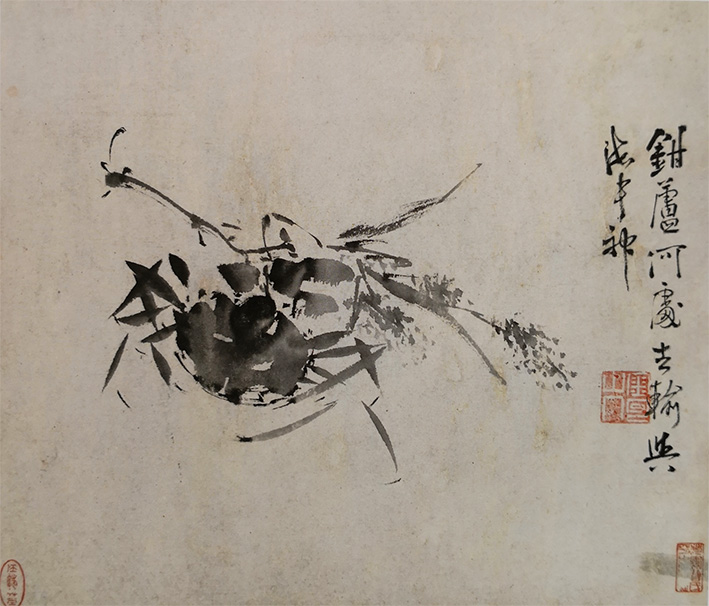 鉗蘆何處去輸與
海中神